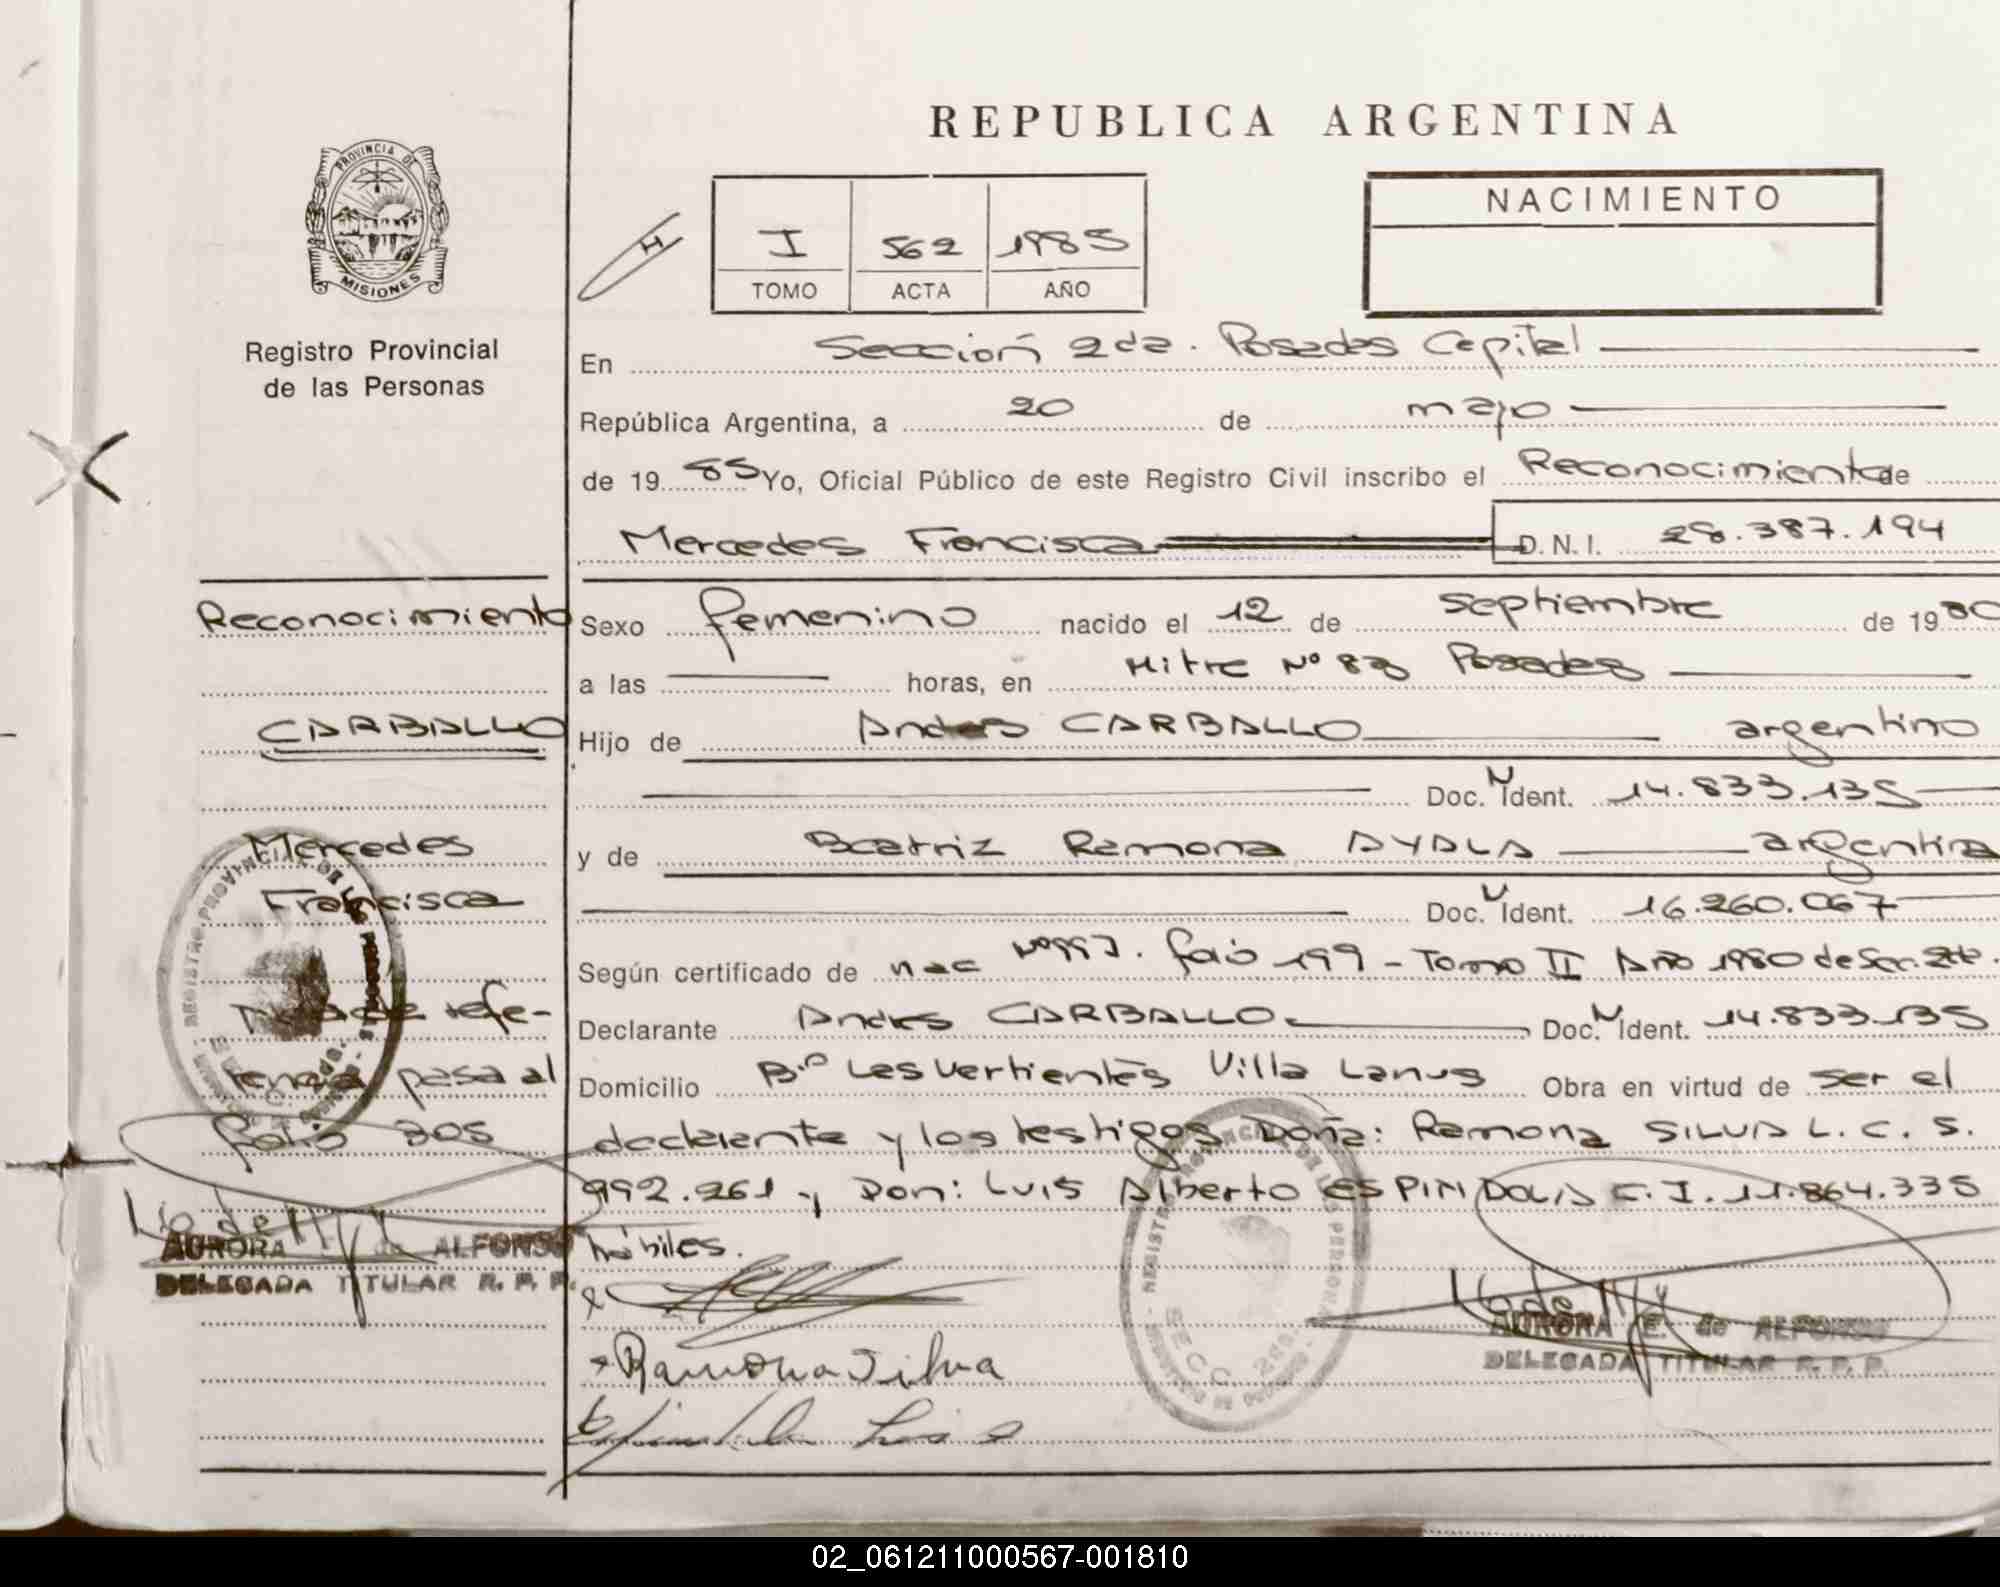 REPUBLICA ARGENTINA
PROVINCIA DE MISIONES
Registro Provincial
de las Personas
H
I 562 1985
TOMO ACTA AÑO
NACIMIENTO
En Sección 2da. Posadas Capital
República Argentina, a 20 de mayo
de 19 85 Yo, Oficial Público de este Registro Civil inscribo el Reconocimiento de
Mercedes Francisca D.N.I. 28.387.194
Sexo femenino nacido el 12 de septiembre de 19 80
a las horas, en Mitre Nº Posadas
Hijo de Andres CARBALLO argentino
Doc. N Ident. 14.833.135
y de Beatriz Ramona AYALA argentina
Doc. N Ident. 16.260.067
Según certificado de nac folio 199 - Tomo II Año 1980 de Sec. 2da.
Declarante Andres CARBALLO Doc. N Ident. 14.833.135
Domicilio B.º Las Vertientes Villa Lanus Obra en virtud de ser el
declarante y los testigos Doña: Ramona SILVA L. C. 5.
992.261 y Don: Luis Alberto ESPINDOLA C. I. 11.864.335
hábiles.
Ramona Silva
Reconocimiento
CARBALLO
Mercedes
Francisca
refe-
rencia pasa al
folio 305
AURORA E. de ALFONSO
DELEGADA TITULAR R. P. P.
REGISTRO PROVINCIAL DE LAS PERSONAS
SECC. 2da.
AURORA E. de ALFONSO
DELEGADA TITULAR R. P. P.
REGISTRO PROVINCIAL DE LAS PERSONAS
SECC. 2da.
02_061211000567-001810